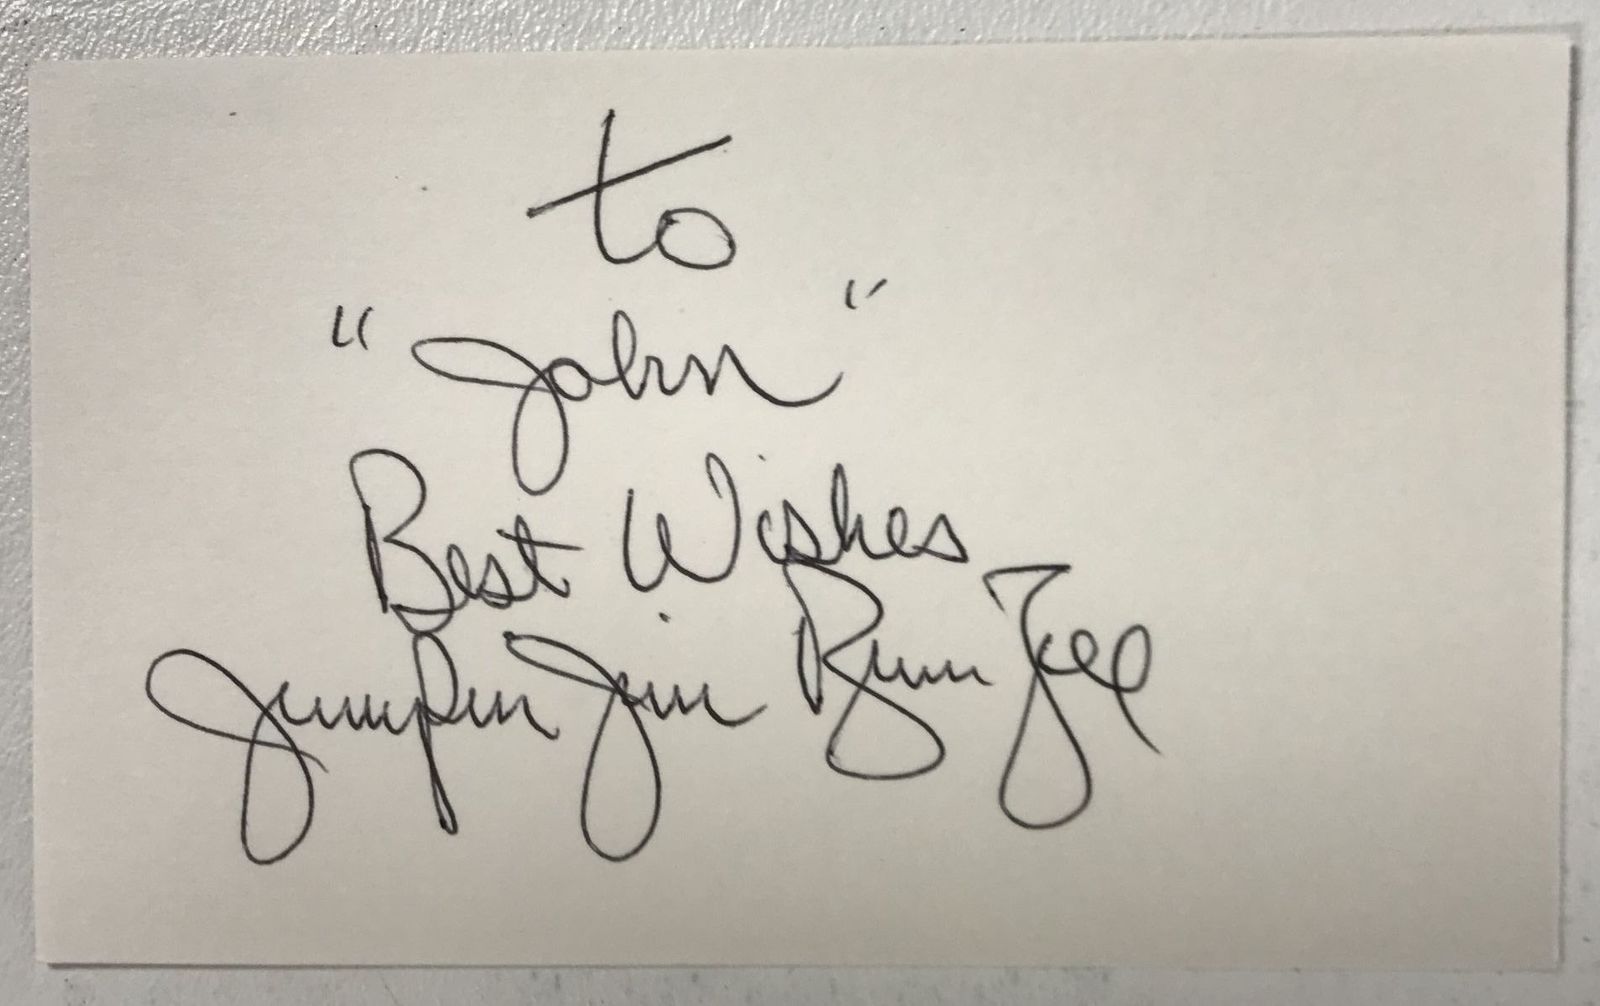 to
"John"
Best Wishes
Jumpin Jim